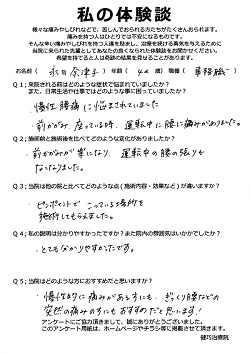 私の体験談
様々な痛みやしびれなどで、苦しんでおられる方たちがたくさんおられます。
痛みを持つ人はひとりでは不安になるものです。
そんな辛い痛みやしびれを持つ人達を励まし、治療を続ける勇気を与えるために
当院に来られた先輩としてあなたの偽られた体験談をお聞かせください。
希望を持てると人は奇跡の結果を見せることができます。
お名前( 永田 奈津子 ) 年齢( 42 歳) 職種( 事務職 )
Q1;来院される前はどのような症状で悩まれていましたか?
また、日常生活や仕事ではどのような事に困っていましたか?
・慢性腰痛に悩まされていました
・前かがみ、座っている時、運転中に腰に痛みがありました。
Q2;施術前と施術後を比べてどのような変化がありましたか?
・前かがみが楽になり、運転中の腰の張りも
なくなりました。
Q3;当院は他の院と比べてどのような点(施術内容・効果など)が違いますか?
・ピンポイントで こっている場所を
施術してもらえました。
Q4;私の説明は分かりやすかったですか?また院内の雰囲気はいかかでしたか?
・とても分かりやすかったです。
Q5;当院はどのような方におすすめだと思いますか?
・慢性的に痛みがある方にも、ぎっくり腰などの
突然の痛みの方にもおすすめだと思います!
アンケートにご協力頂きまして、誠にありがとうございました。
このアンケート用紙は、ホームページやチラシ等に掲載させて頂きます。
健巧治療院